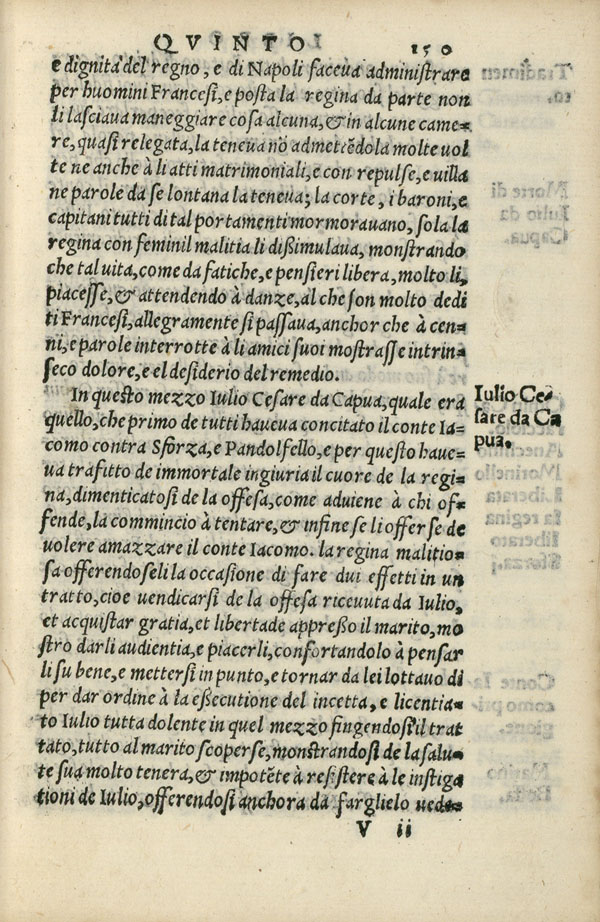 QVINTO 150
e dignità del regno, e di Napoli faceua administrare
per huomini Francesi, e posta la regina da parte non
li lasciaua maneggiare cosa alcuna, & in alcune came-
re, quasi relegata, la teneua nō admetēdola molte uol
te ne anche à li atti matrimoniali, e con repulse, e uilla
ne parole da se lontana la teneua; la corte, i baroni, e
capitani tutti di tal portamenti mormorauano, sola la
regina con feminil malitia li dißimulaua, monstrando
che tal uita, come da fatiche, e pensieri libera, molto li,
piacesse, & attendendo à danze, al che son molto dedi
ti Francesi, allegramente si passaua, anchor che à cen-
ni, e parole interrotte à li amici suoi mostrasse intrin-
seco dolore, e el desiderio del remedio.
In questo mezzo Iulio Cesare da Capua, quale era
quello, che primo de tutti haueua concitato il conte Ia-
como contra Sforza, e Pandolfello, e per questo haue-
ua trafitto de immortale ingiuria il cuore de la regi-
na, dimenticatosi de la offesa, come aduiene à chi of-
fende, la commincìo à tentare, & infine se li offerse de
uolere amazzare il conte Iacomo. la regina malitio-
sa offerendoseli la occasione di fare dui effetti in un
tratto, cioe uendicarsi de la offesa riceuuta da Iulio,
et acquistar gratia, et libertade appreßo il marito, mo
strò darli audientia, e piacerli, confortandolo à pensar
li su bene, e mettersi in punto, e tornar da lei lottauo di
per dar ordine à la eßecutione del incetta, e licentia-
to Iulio tutta dolente in quel mezzo fingendosi il trat
tato, tutto al marito scoperse, monstrandosi de la salu-
te sua molto tenera, & impotēte à resistere à le instiga
tioni de Iulio, offerendosi anchora da farglielo uede-
V ii
Iulio Ce-
sare da Ca
pua.